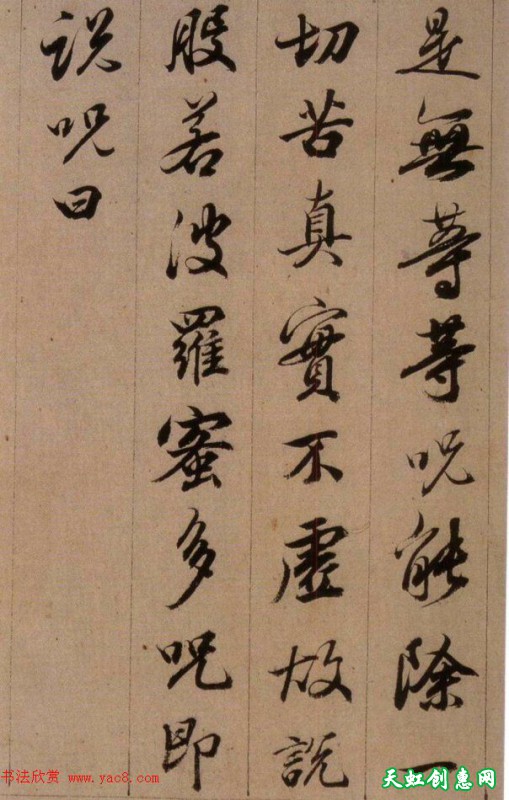 是無等等呪能除一
切苦真實不虛故說
般若波羅蜜多呪即
說呪曰
书法欣赏 www.yac8.com
天虹创惠网